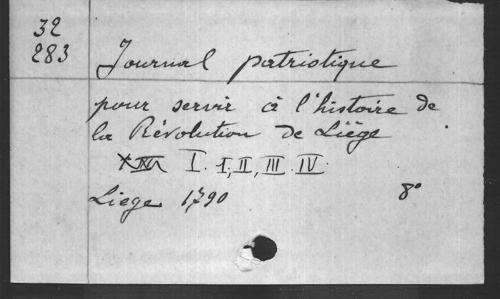 32
283
Journal patristique
pour servir à l'histoire de
la Révolution de Liège
I. 1, II, III. IV.
Liege 1790 8°